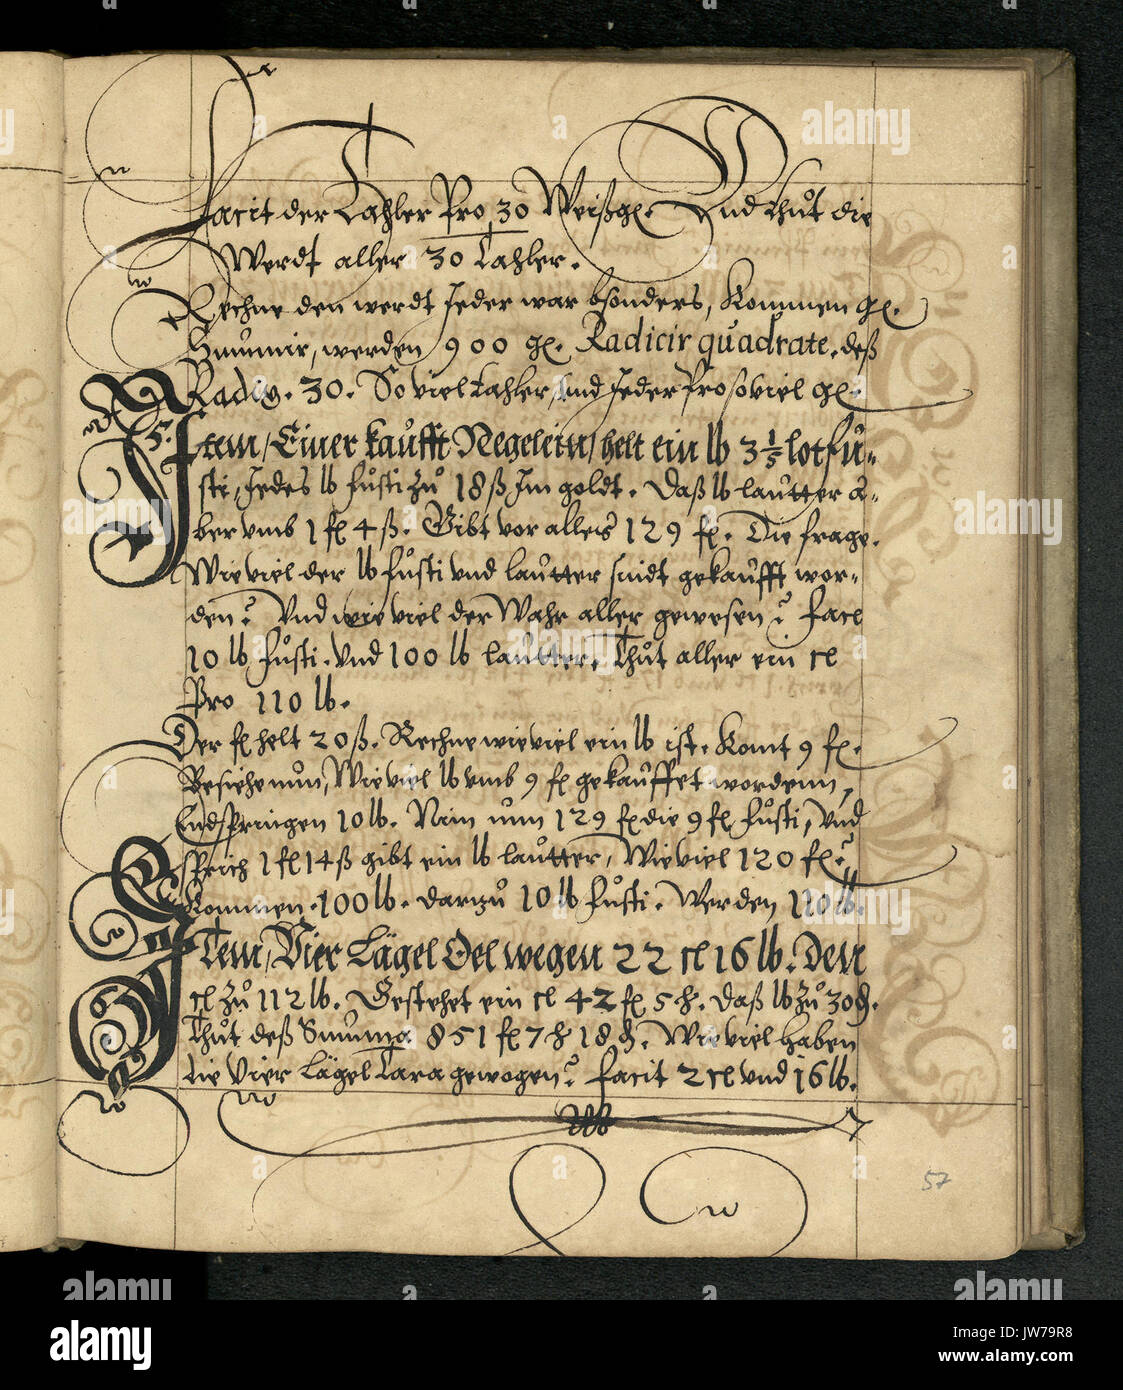 Facit der Tahler Pro 30 Weißgl. Und thůt die
Werdt aller 30 Tahler.
Rechne den werdt Jeder war bsonders, Kommen gl.
werden 900 gl. Radicir quadrate. deß
Radix. 30. So viel Tahler, und Jeder Pro so viel gl.
5.
Item, Einer kaufft Negelein, helt ein lb 3 1/5 lot fů-
sti, Jedes lb fůsti zů 18 ß Im goldt. Daß lb lautter a-
ber vmb 1 fl 4 ß. Gibt vor alles 129 fl. Die frage.
Wie viel der lb fůsti vnd lautter sindt gekaufft wor-
den? Und wie viel der Wahr aller gewesen? facit
10 lb fůsti. Und 100 lb lautter. Thůt aller ein cl
Pro 110 lb.
Der fl helt 20 ß. Rechne wie viel ein lb ist. Komt 9 fl.
Besiehe nun, Wie viel lb vmb 9 fl gekauffet wordenn,
Endspringen 10 lb. Nim nun 129 fl die 9 fl fůsti, Und
sprich 1 fl 4 ß gibt ein lb lautter, Wie viel 120 fl?
Kommen 100 lb. darzů 10 lb fůsti. Werden 110 lb.
Item, Vier Lägel Oel wegen 22 cl 16 lb. Den
cl zů 112 lb. Gestehet ein cl 42 fl 5 ß. Daß lb zů 30 ₰.
Thůt deß Summa 851 fl 7 ß 18 ₰. Wie viel haben
die Vier Lägel Tara gewogen? facit 2 cl und 16 lb.
57
alamy
Image ID: JW79R8
www.alamy.com